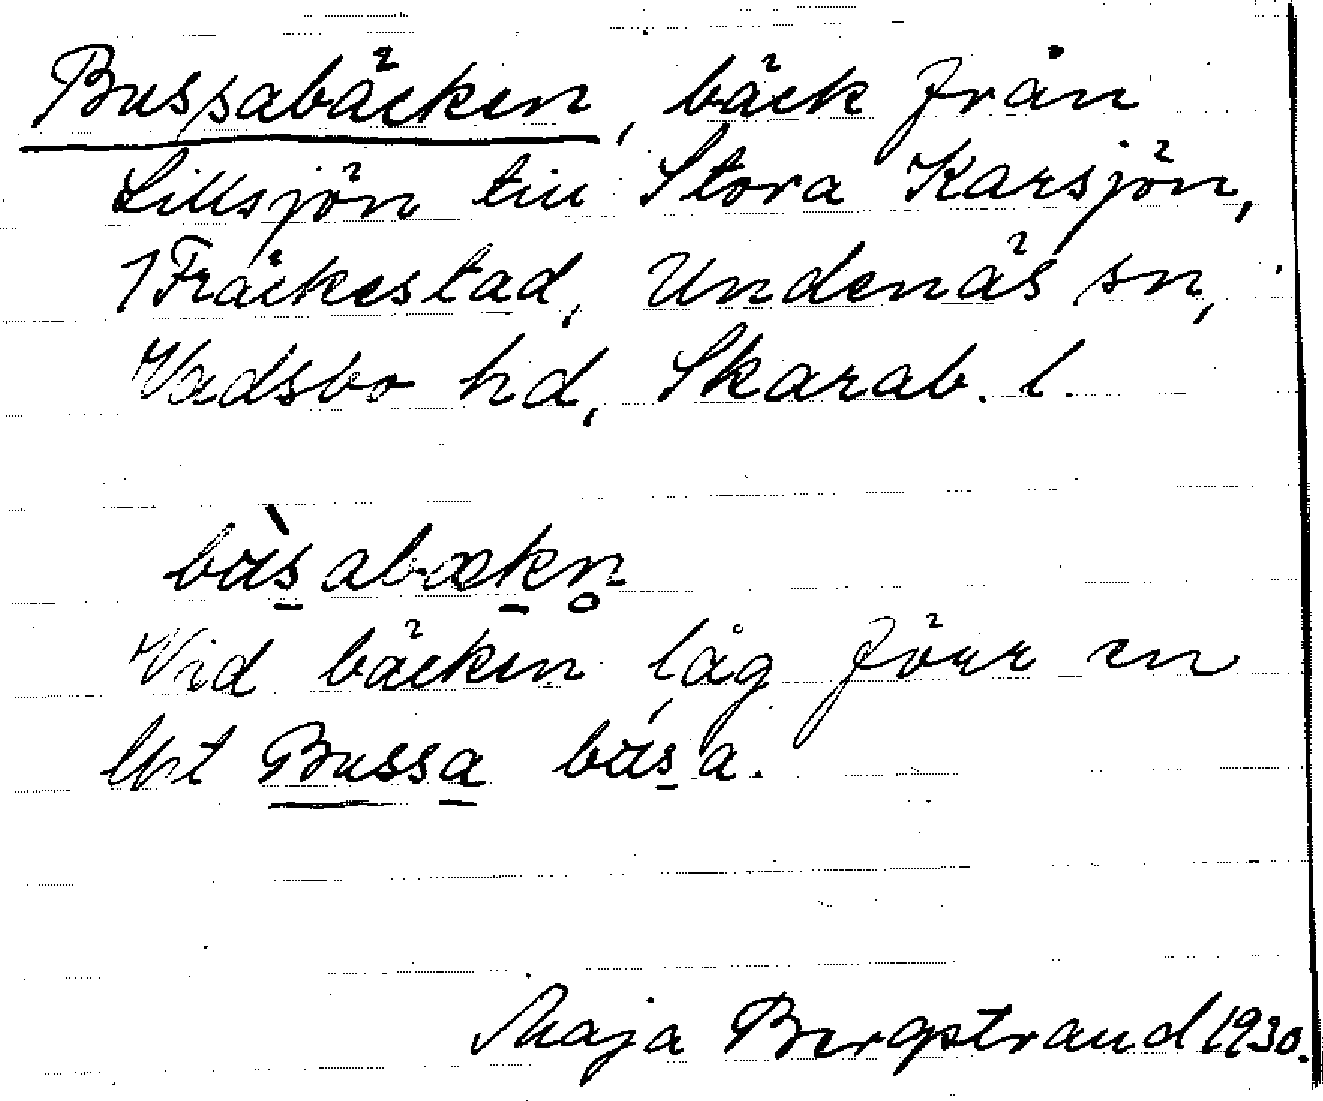 Bussabäcken, bäck från
Lillsjön till Stora Karsjön,
1 Fräckestad, Undenäs sn,
Vadsbo hd, Skarab. l.
bùsabækn̥
Vid bäcken låg förr en
lht Bussa bùsa.
Maja Bergstrand 1930.